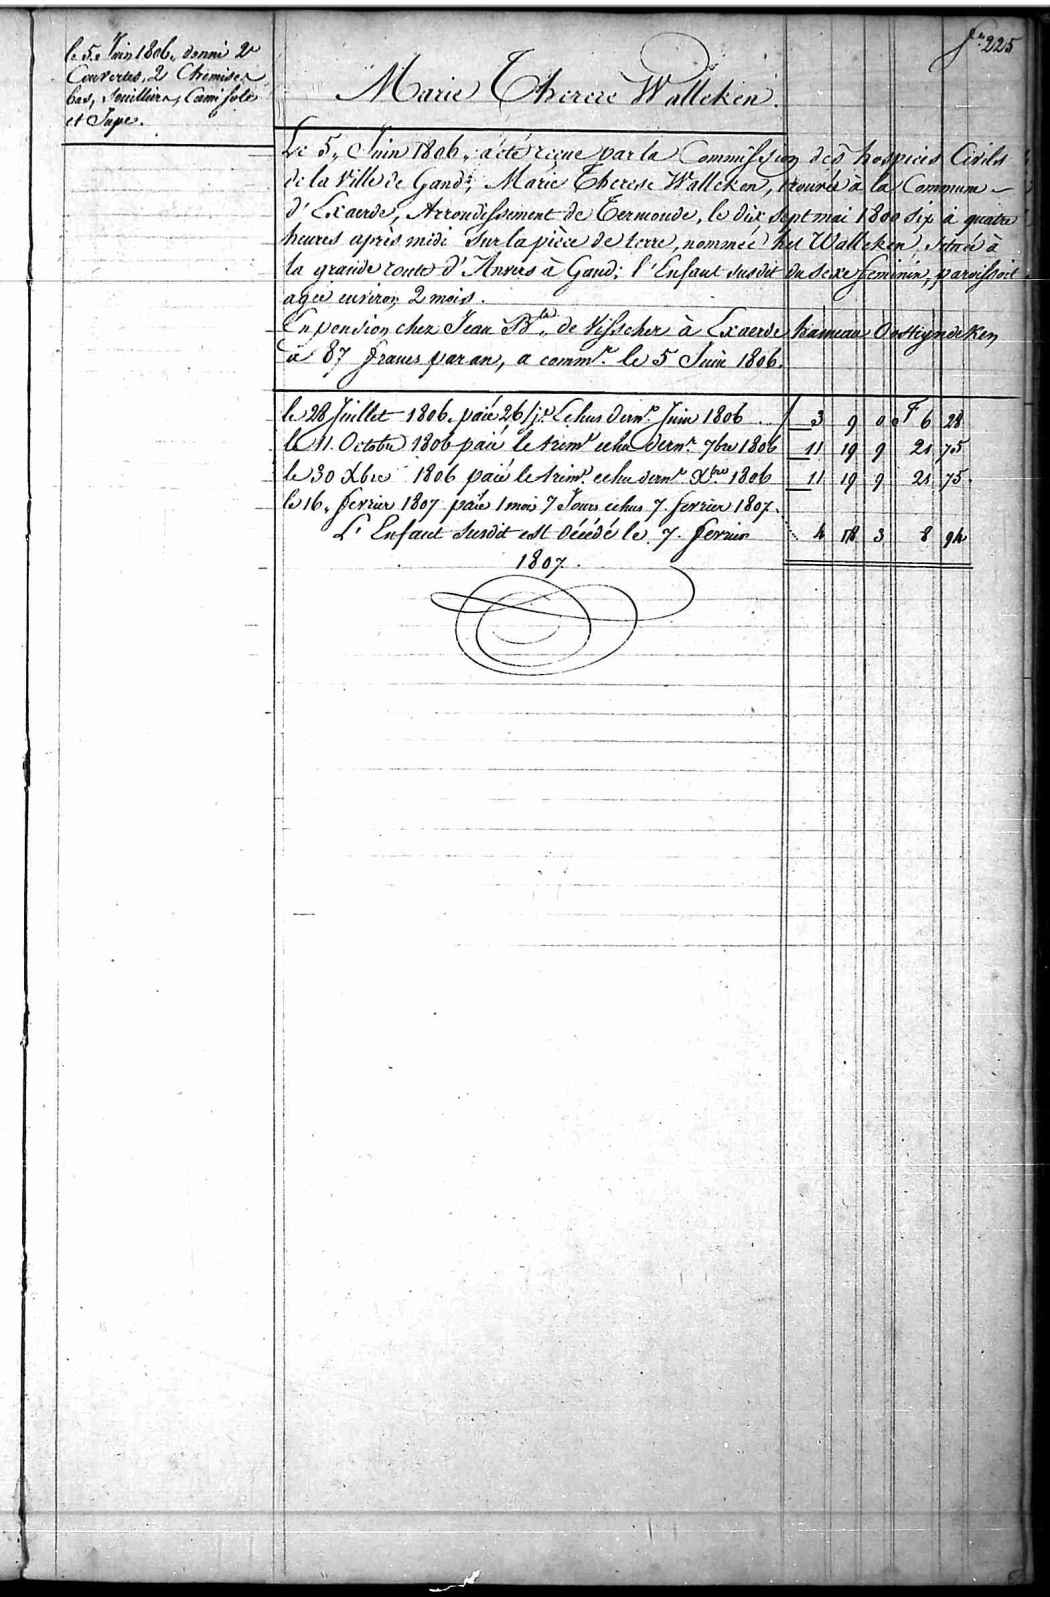 f.º 225
le 5. Juin 1806. donné 2
Couvertes, 2 Chemises
bas, Souilliers, Camisole
et Jupe.
Marie Therese Walleken.
Le 5. Juin 1806. a été reçue par la Commission des hospices Civils
de la Ville de Gand; Marie Therese Walleken, trouvée à la Commune
d'Exaerde, Arrondissement de Termonde, le dix sept mai 1800 six à quatre
heures après midi sur la pièce de terre, nommée het Walleken, située à
la grande route d'Anvers à Gand: l'Enfant susdit du sexe feminin, paroissoit
agée environ 2 mois.
En pension chez Jean Bta. de Visscher à Exaerde hameau Oosteyndeken
à 87 francs par an, a commr. le 5 Juin 1806.
le 28 Juillet 1806. païé 26/jrs. echus dernr. Juin 1806 3 9 0 F 6 28
le 11. Octobre 1806 païé le trimr. echu dernr. 7bre 1806 11 19 9 21 75
le 30 Xbre 1806 païé le trimr. echu dernr. Xbre 1806 11 19 9 21 75.
le 16. fevrier 1807 païé 1 mois 7 Jours echus 7. fevrier 1807.
L'Enfant susdit est Décédé le 7. fevrier 4 18 3 8 94
1807.